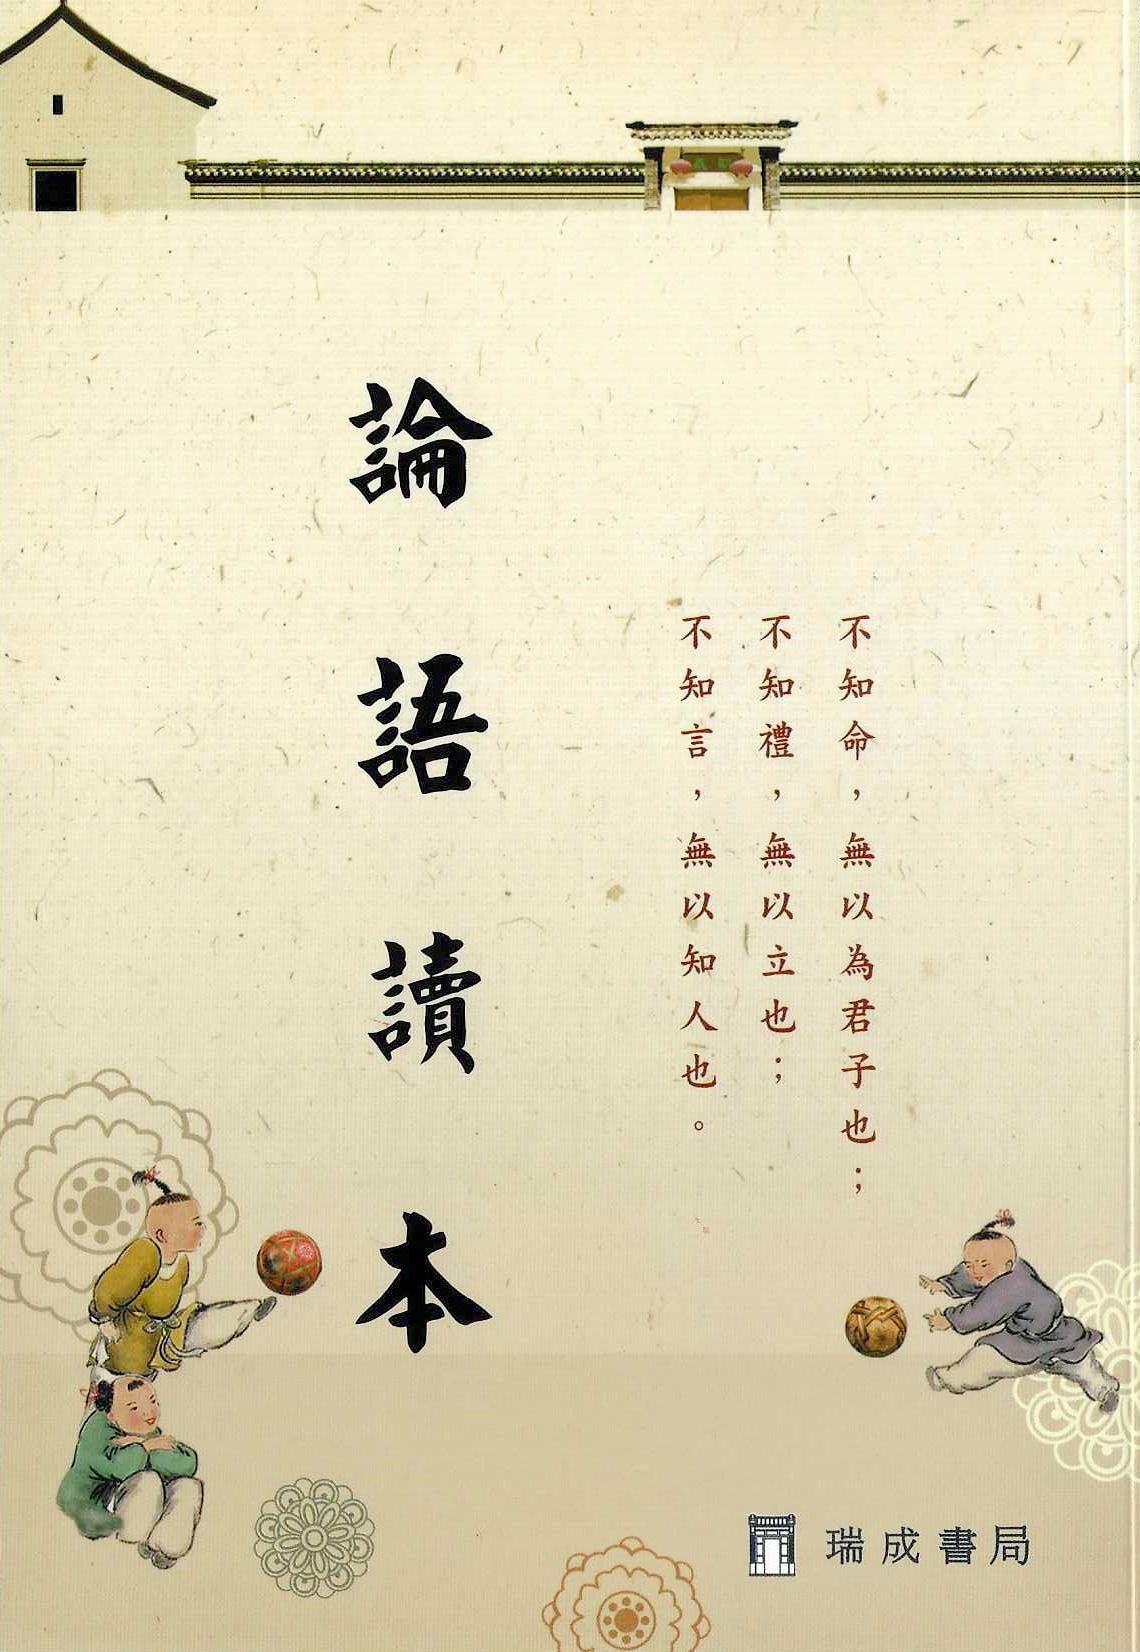 不知命，無以為君子也；
不知禮，無以立也；
不知言，無以知人也。
論語讀本
瑞成書局